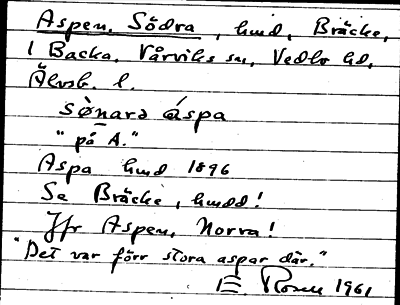 Aspen, Södra, hmd, Bräcke,
1 Backa, Vårviks sn, Vedbo hd,
Älvsb. l.
sònara áspa
"på A."
Aspa hmd 1896
Se Bräcke, hmdd!
Jfr Aspen, Norra!
"Det var förr stora aspar där."
Rosell 1961